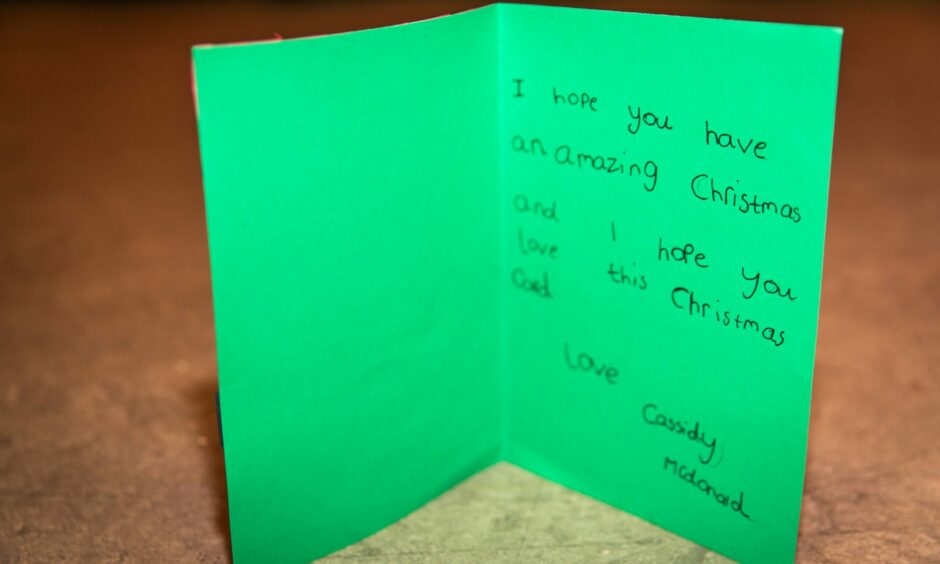 I hope you have
an amazing Christmas
and I hope you
love this Christmas
Card
Love
Cassidy
mcdonald